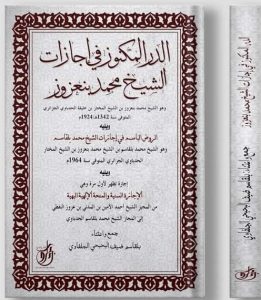 الدر المكنوز في إجازات
الشيخ محمد بنعزوز
وهو الشيخ محمد بنعزوز بن الشيخ المختار بن خليفة الحدباوي الجزائري
المتوفى سنة 1342هـ/1924م
ويليه
الروض الباسم في إجازات الشيخ محمد بلقاسم
وهو الشيخ محمد بلقاسم بن الشيخ محمد بنعزوز بن الشيخ المختار
الحدباوي الجزائري المتوفى سنة 1964م
ويليه
إجازة تظهر لأول مرة وهي
الإجازة السنية والمنحة الإلهية البهية
من المجيز الشيخ أحمد الأمين بن المدني بن عزوز النفطي
إلى المجاز الشيخ محمد بلقاسم الحدباوي
جمع واعتناء
بلقاسم ضيف الجلفاوي
الدر المكنوز في إجازات الشيخ محمد بنعزوز
جمع واعتناء بلقاسم ضيف الجلفاوي